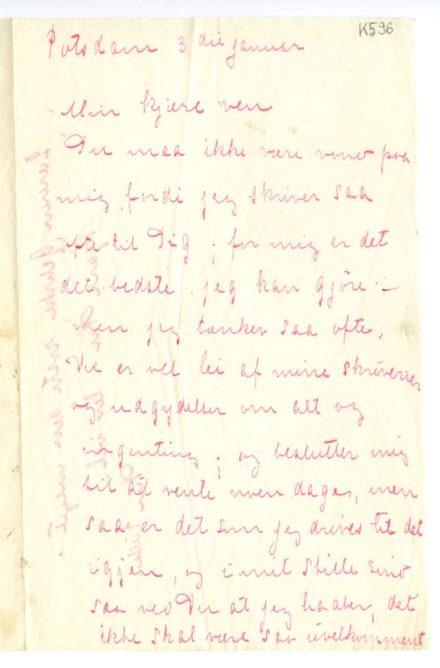 K596
Potsdam 3 die Januar
Min kjære ven
Du maa ikke være vond paa
mig fordi jeg skriver saa
ofte til Dig; for mig er det
det bedste jeg kan gjöre –
Men jeg tænker saa ofte,
Du er vel lei af mine skriverier
og udgydelser om alt og
ingenting; og beslutter mig
til at vente noen dage, men
saa er det som jeg drives til det
igjen, og i mit stille sind
saa ved Du at jeg haaber, det
ikke skal være saa uvelkomment